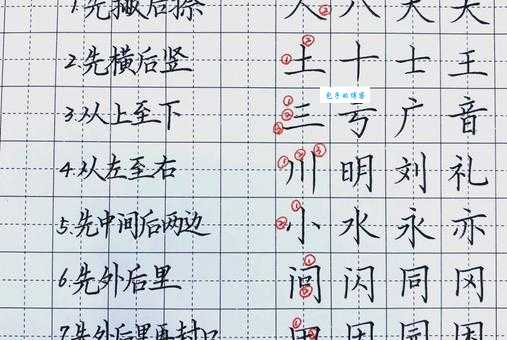 1.先撇后捺 人 八 大 天
2.先横后竖 土 十 士 王
包子的博客
3.从上至下 三 亏 广 音
4.从左至右 川 明 刘 礼
5.先中间后两边 小 水 永 亦
6.先外后里 闯 闪 同 冈
7.先外后里再封口 田 因 园 困